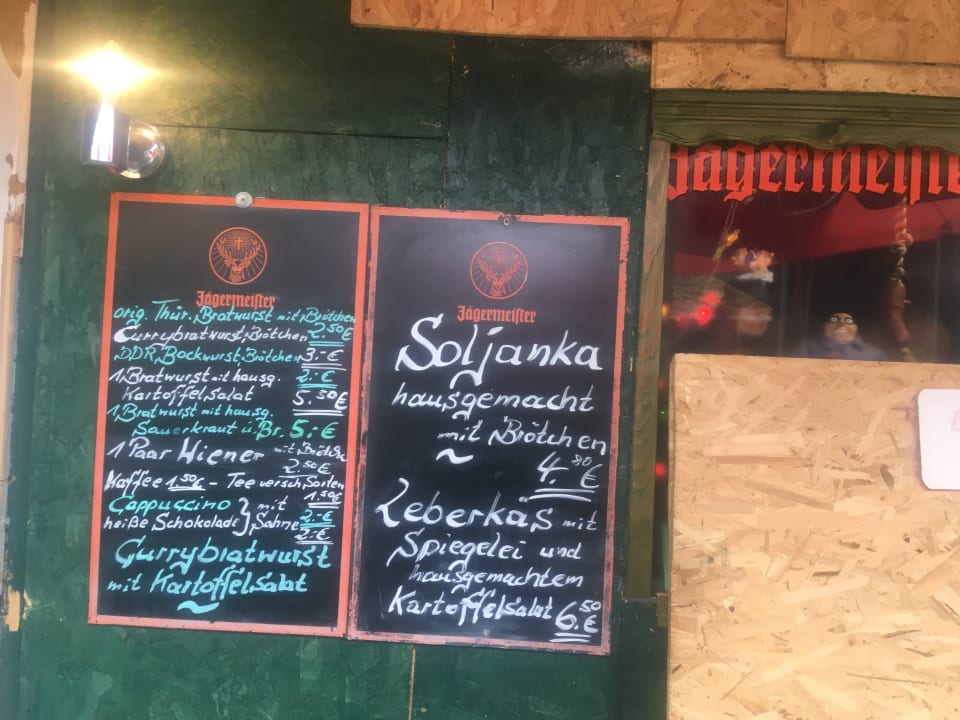 Jägermeister
orig. Thür. Bratwurst mit Brötchen
2.50€
Currybratwurst, Brötchen
3.-€
DDR, Bockwurst, Bötchen
2.-€
1 Bratwurst mit hausg.
Kartoffelsalat 5.50€
1 Bratwurst mit hausg.
Sauerkraut u. Br. 5,-€
1 Paar Wiener mit Brötch.
2.50€
Kaffee 1.50€ - Tee versch. Sorten
1.50€
Cappuccino } mit 2.-€
heiße Schokolade } Sahne 2.-€
Currybratwurst
mit Kartoffelsalat
~
Jägermeister
Soljanka
~
hausgemacht
mit Brötchen
~
4.80€
Leberkäs mit
Spiegelei und
hausgemachtem
Kartoffelsalat 6.50€
Jägermeister